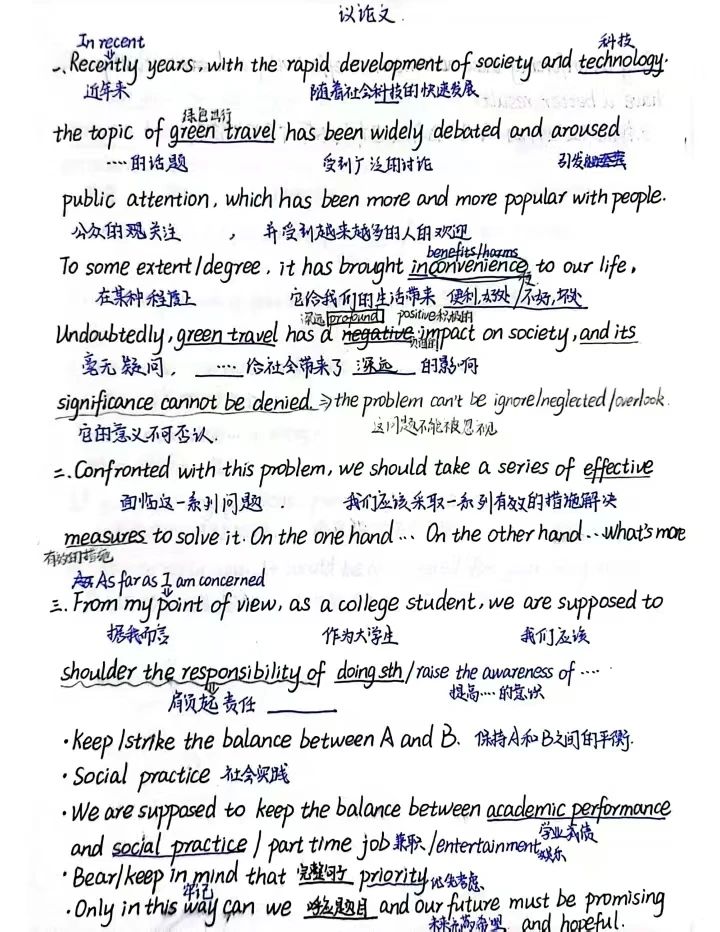 议论文.
In recent 科技
一、Recently years, with the rapid development of society and technology.
近年来 随着社会科技的快速发展
绿色出行
the topic of green travel has been widely debated and aroused
····的话题 受到广泛的讨论 引发
public attention, which has been more and more popular with people.
公众的观关注 , 并受到越来越多的人的欢迎
benefits/harms
To some extent/degree, it has brought inconvenience to our life,
在某种程度上 它给我们的生活带来 便利,好处/不好,坏处
深远 profound positive积极的
Undoubtedly, green travel has a negative impact on society, and its
负面的
毫无疑问, ···· 给社会带来了 深远 的影响
significance cannot be denied. ⇒ the problem can't be ignore/neglected/overlook.
它的意义不可否认. 这问题不能被忽视
二. Confronted with this problem, we should take a series of effective
面临这一系列问题. 我们应该采取一系列有效的措施解决
measures to solve it. On the one hand ··· On the other hand ··· what's more
有效的措施
As far as I am concerned
三. From my point of view, as a college student, we are supposed to
据我而言 作为大学生 我们应该
shoulder the responsibility of doing sth/raise the awareness of ····
肩负起责任 提高····的意识
·Keep/strike the balance between A and B. 保持A和B之间的平衡.
·Social practice 社会实践
·We are supposed to keep the balance between academic performance
学业成绩
and social practice / part time job 兼职 /entertainment 娱乐
·Bear/keep in mind that 完整句子 priority 优先考虑
牢记
·Only in this way can we 呼应题目 and our future must be promising
未来充满希望 and hopeful.